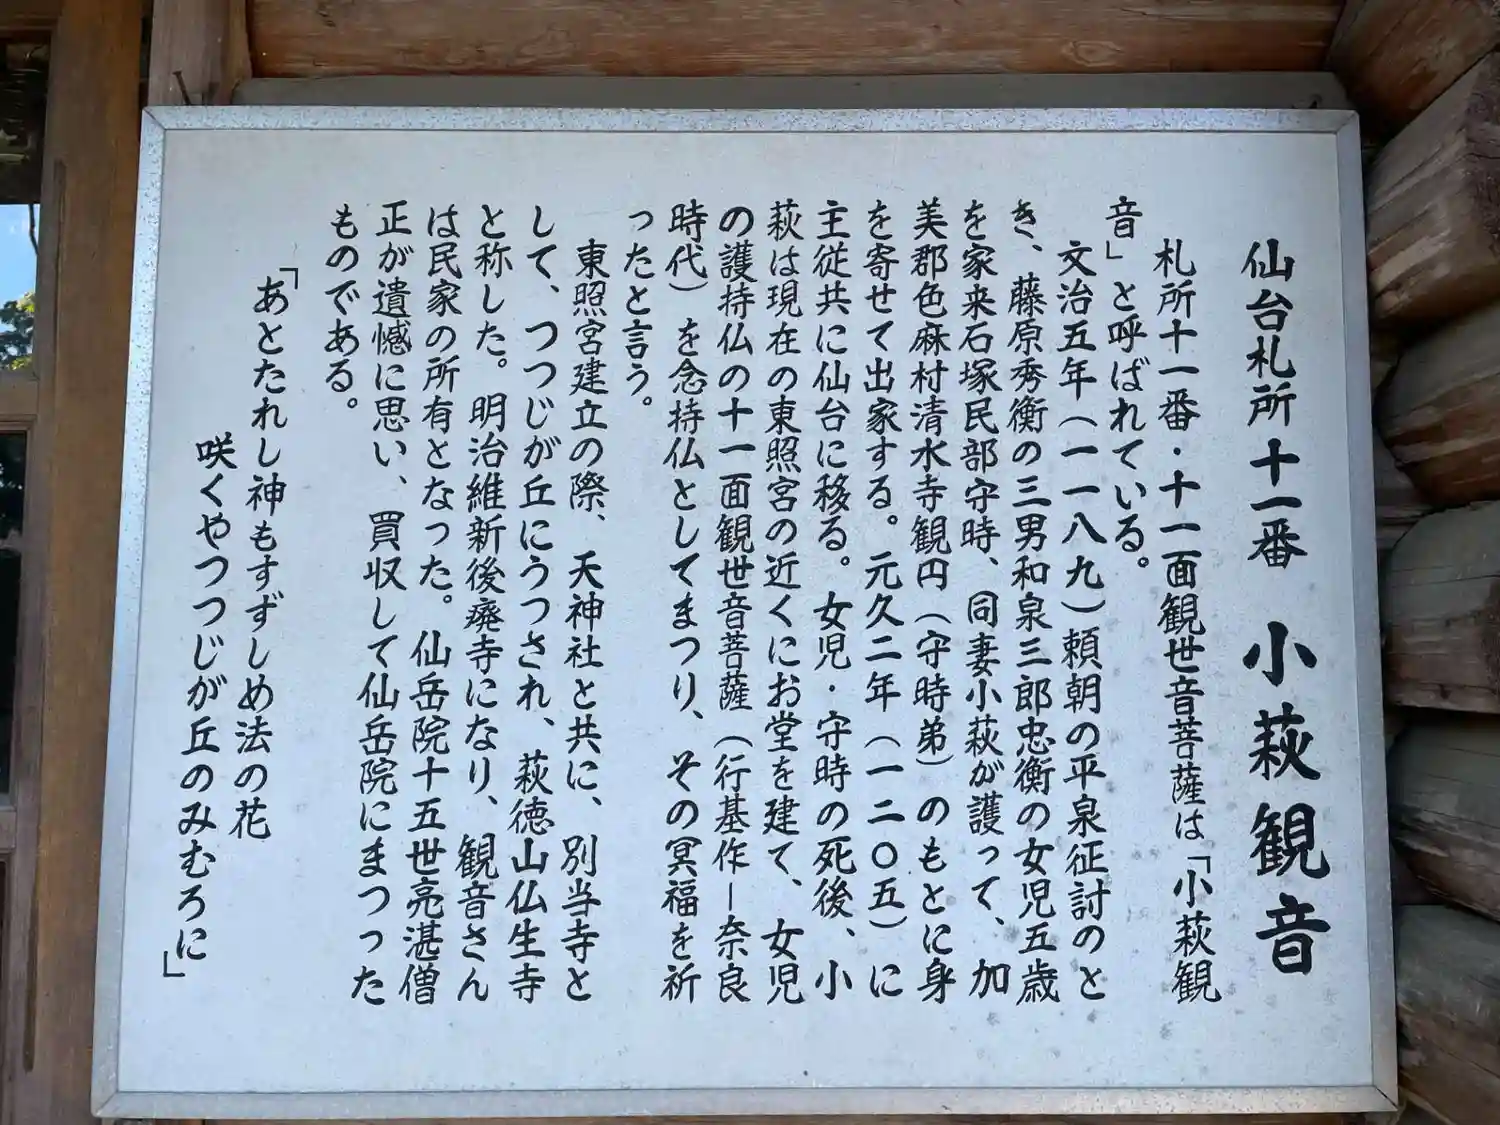 仙台札所十一番 小萩観音
札所十一番・十一面観世音菩薩は「小萩観
音」と呼ばれている。
文治五年(一一八九)頼朝の平泉征討のと
き、藤原秀衡の三男和泉三郎忠衡の女児五歳
を家来石塚民部守時、同妻小萩が護って、加
美郡色麻村清水寺観円(守時弟)のもとに身
を寄せて出家する。元久二年(一二〇五)に
主従共に仙台に移る。女児・守時の死後、小
萩は現在の東照宮の近くにお堂を建て、女児
の護持仏の十一面観世音菩薩(行基作―奈良
時代)を念持仏としてまつり、その冥福を祈
ったと言う。
東照宮建立の際、天神社と共に、別当寺と
して、つつじが丘にうつされ、萩徳山仏生寺
と称した。明治維新後廃寺になり、観音さん
は民家の所有となった。仙岳院十五世亮湛僧
正が遺憾に思い、買収して仙岳院にまつった
ものである。
「あとたれし神もすずしめ法の花
咲くやつつじが丘のみむろに」